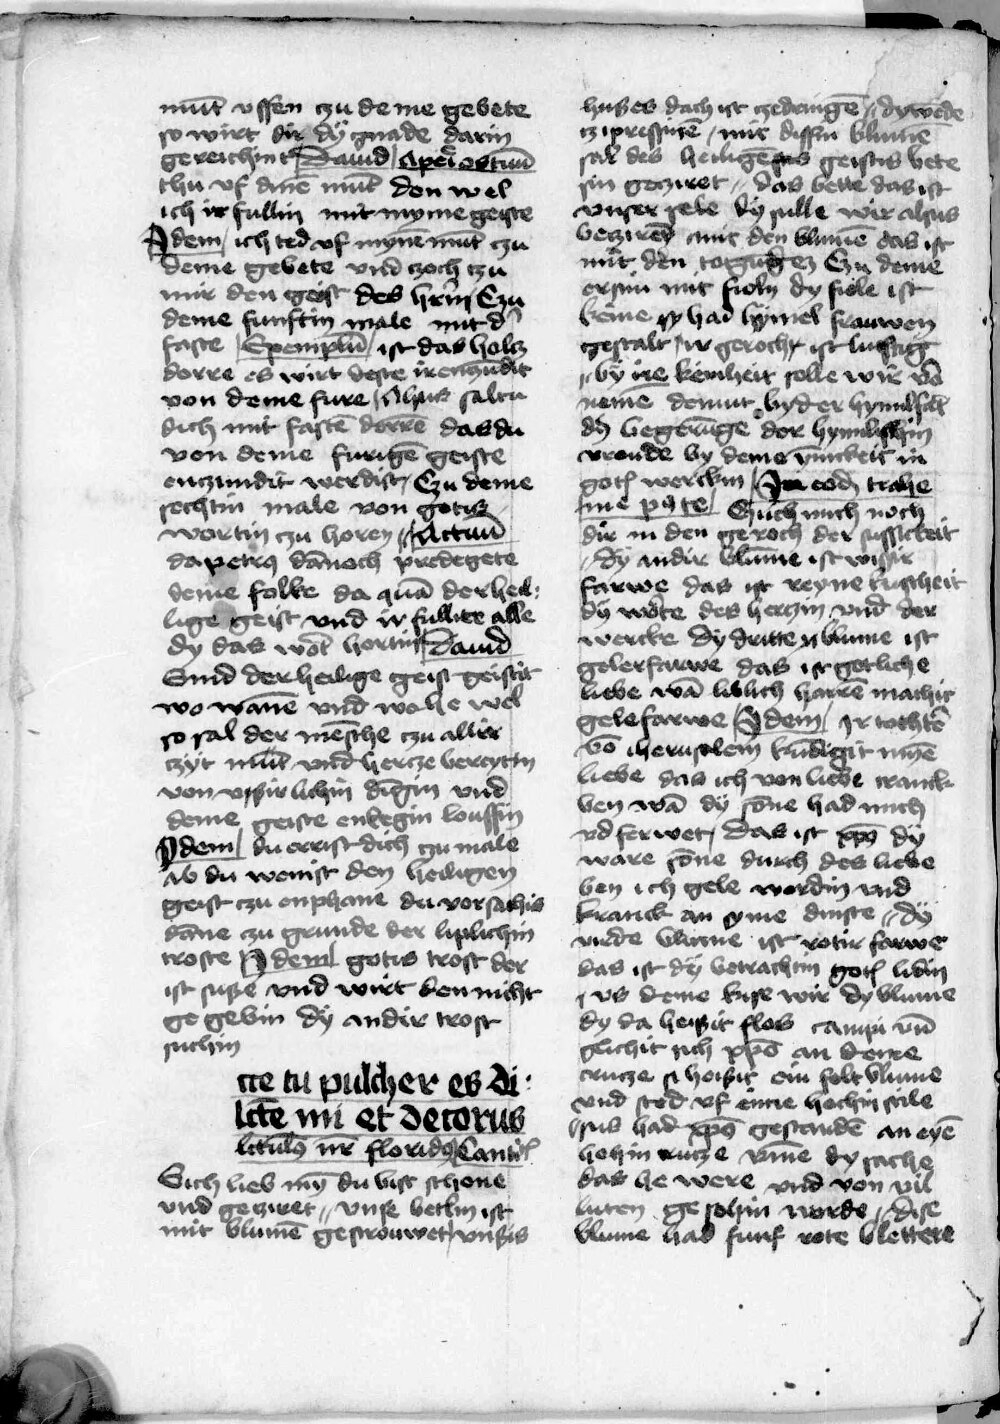 munt uffen czu deme gebete
so wirt dir dÿ gnade darin
gereichint David Aperi os tuū
thu uf dinē mūt den wel
ich ir fullin mit myme geiste
Idem ich ted uf mynē mūt czu
deme gebete und czoch czu
mir den geist des hrīn Czu
deme funftin male mit d'
faste Exemplū ist das holcz
dorre es wirt deste ir enczundit
von deme fure Alsus saltu
dich mit fastē dorrē das du
von deme furigē geiste
enczundit werdist Czu deme
sechstin male von gotis
wortin czu horen Actuū
da petrus dānoch predegete
deme folke da quā der heil:
lige geist und ir fullite alle
dy das wort hortin David
Sind der heilige geist geistit
wo wanē und wo he wel
so sal der mēsche czu allir
czyt mūt und hercze bereytin
von uszirlichin dīgin und
deme geiste enkegin louffin
Idem du errist dich czu male
ab du wenist den heiligen
geist czu enphane du vorsachis
dāne czu grunde der liplichin
troste Idem gotis trost der
ist susze und wirt den nicht
gegebin dÿ andir trost
suchin
cce tu pulcher es di:
lcte mi et decorus
lectulus nr floridus Cantic
Sich lieb my du bist schone
und gecziret unse betlin ist
mit blumē gestrouwet unszis
huszes dach ist czedringē dy wende
cziprissinē mit dissin blumē
sal des heiligē geistis bete
sin gecziret das bette das ist
unser sele dÿ sulle wir alsus
beczirē mit den blumē das ist
mit den togunden Czu deme
ersin mit fioln dy fiole ist
keine sy had hymel frauwen
gestalt ir geroch ist lustig
by ire kenheit solle wir vor
neme demut by der hymilfar
dÿ begerūge der hymlischin
vroude by deme in
gotis werckin In cod trahe
me p9 te Czuch mich noch
dir in den geroch der sussickeit
dÿ andir blūme ist wissir
farwe das ist reyne kuscheit
dÿ wōte des herczin und der
wercke dÿ dritte blume ist
geler farwe das ist gotliche
liebe wā liblich harrē machit
gele farwe Idem Ir tochtē
vō iherusalem kūdigit mynē
liebe das ich von liebe kranck
ben wā dÿ sōne had mich
vorferwet Das ist xps dÿ
ware sōne durch des liebe
ben ich gele wordin und
kranck an syme dinste dÿ
virde blume ist rotir farwe
das ist dÿ betrachtin gotis lidin
us deme kise wir dy blume
dy da heiszit flos campi uñ
glichit sich xps an deme
crucze si heiszit ein felt blume
und sted uf eime hochin stile
sus had xps gestandē an eyē
hohin crucze ume dy sache
das he were und von vil
luten gesehin worde dise
blume had funf rote blettere